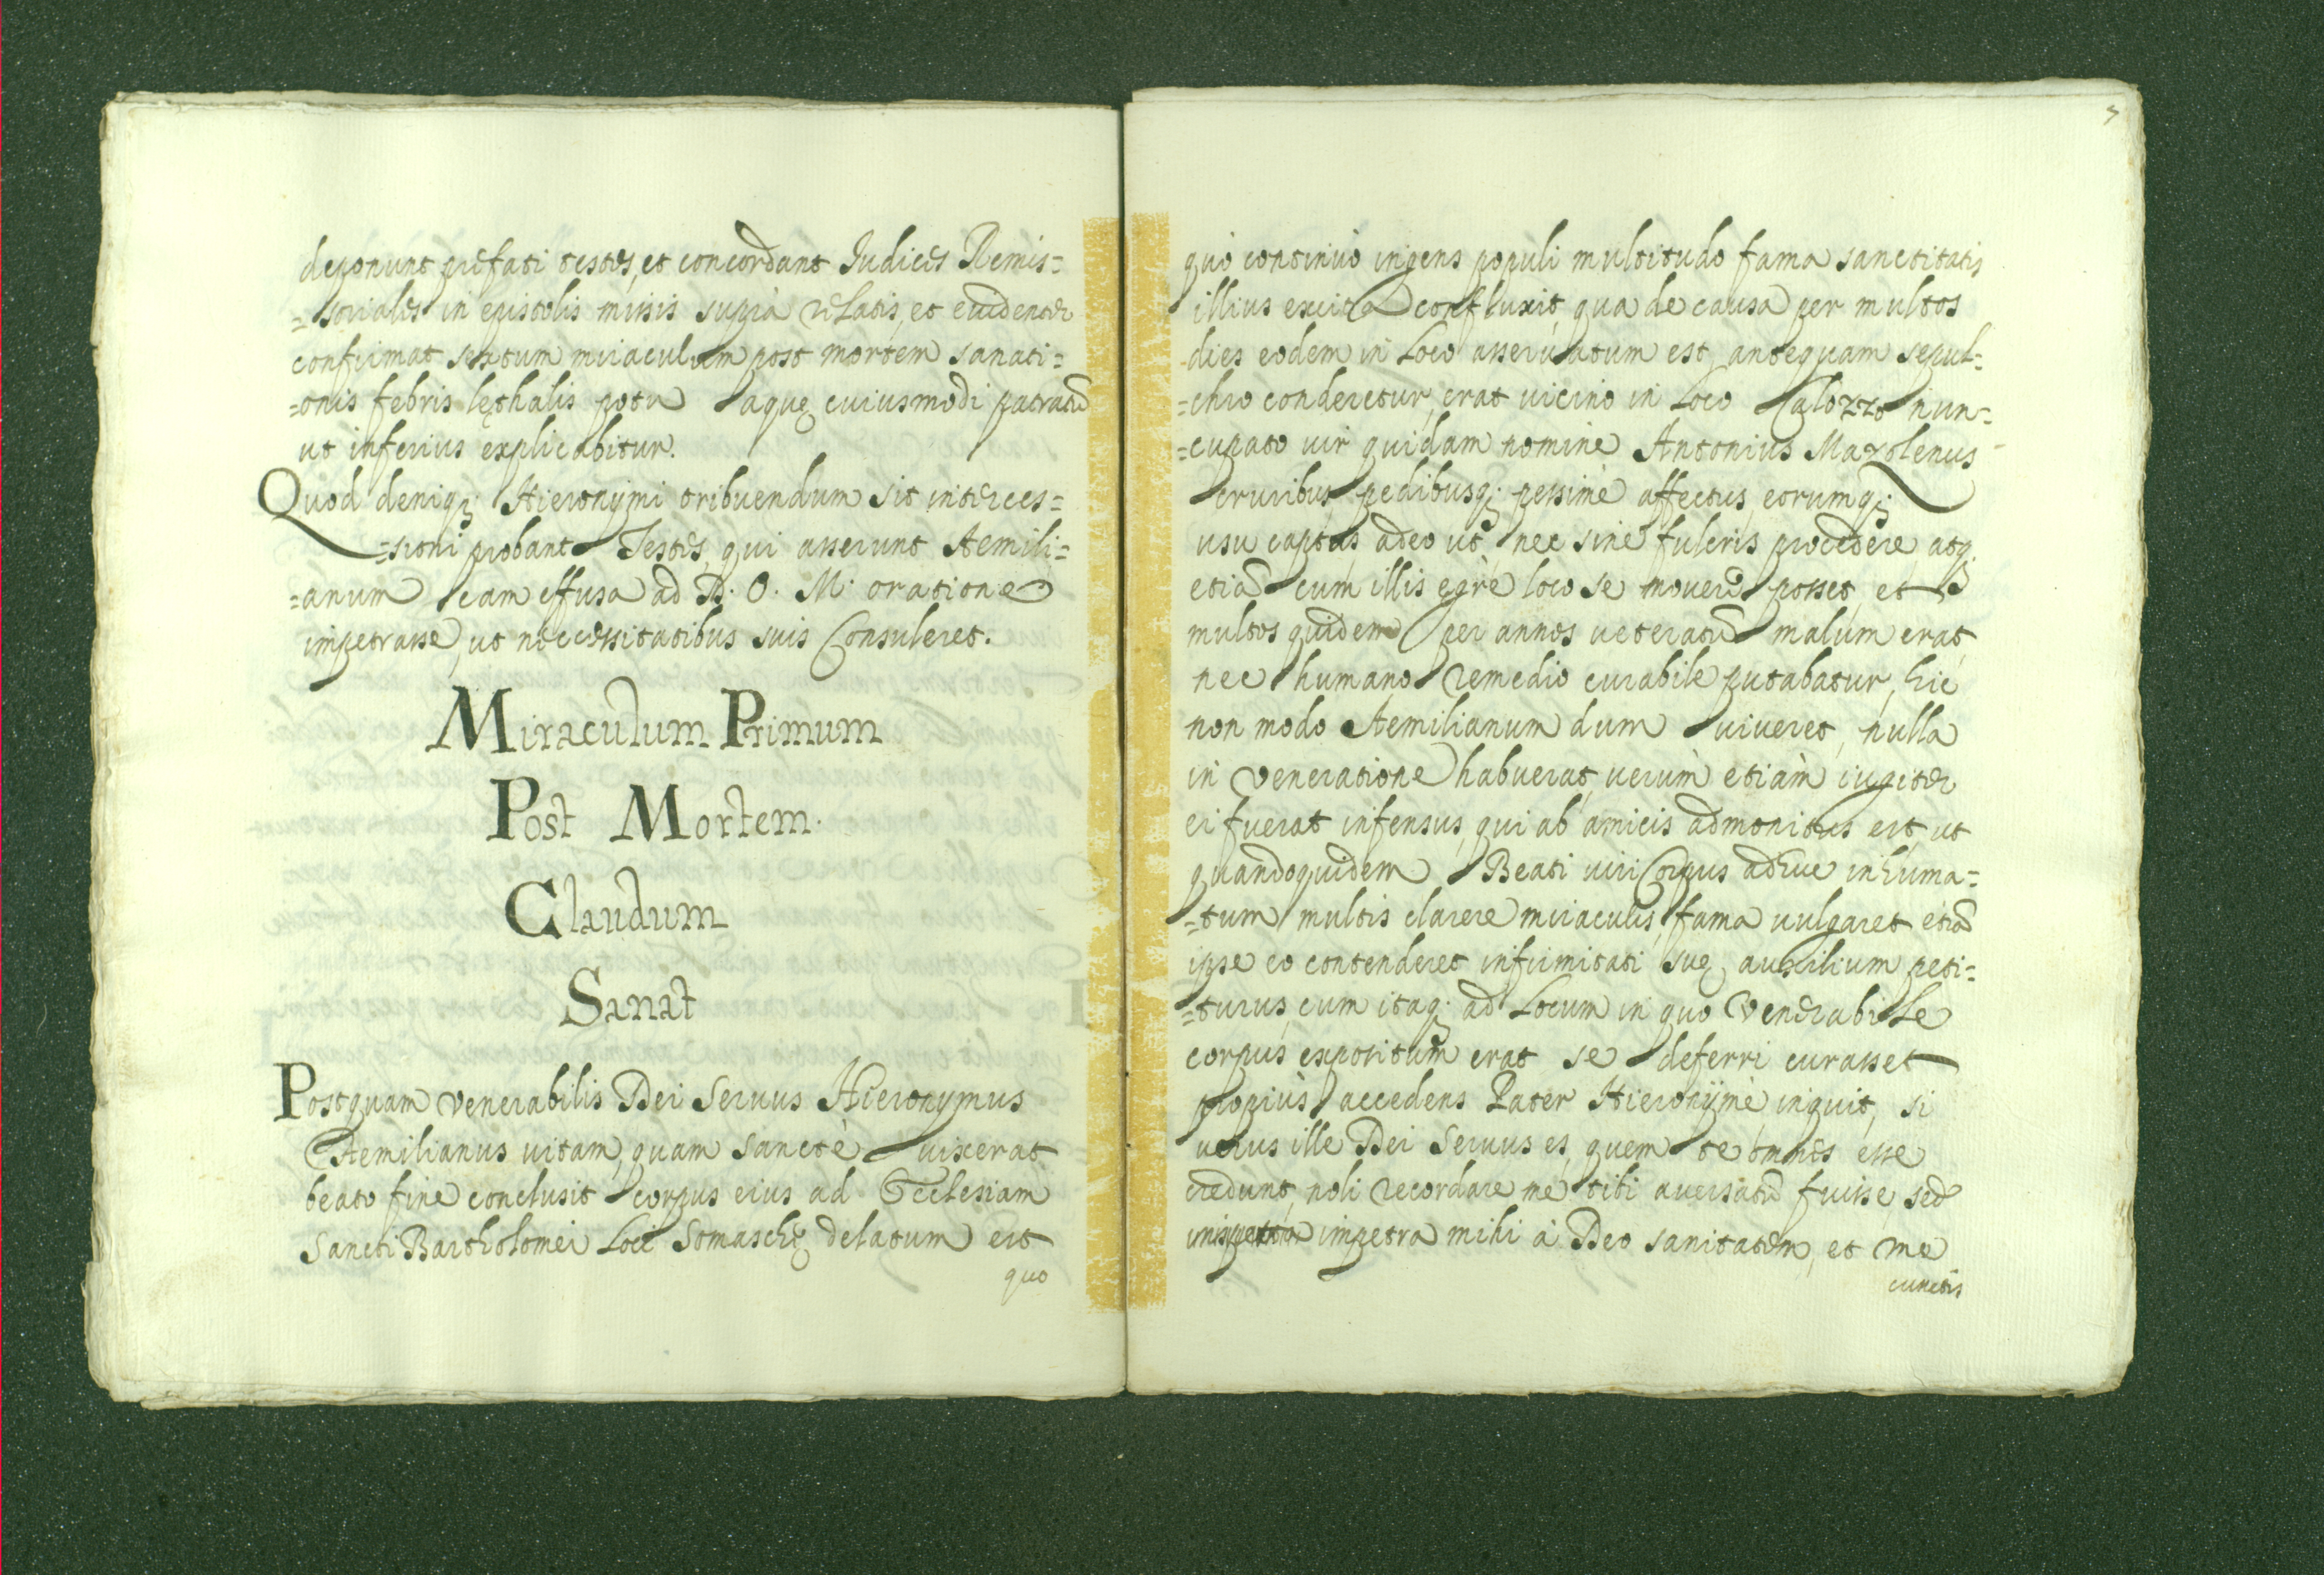 deponunt prefati testes, et concordant Iudices Remis=
=soriales in epistolis missis suprà relatis, et euidenter
confirmat sextum miraculum post mortem sanati=
=onis febris lęthalis potu aquę cuiusmodi patratũ
ut inferius explicabitur.
Quod deniq; Hieronymi tribuendum sit interces=
=sioni probant Testes, qui asserunt Aemili=
=anum eam effusa ad D. O. M. oratione
impetrasse, ut necessitatibus suis Consuleret.
Miraculum Primum
Post Mortem.
Claudum
Sanat
Postquam venerabilis Dei Seruus Hieronymus
Aemilianus uitam, quam Sanctè uixerat
beato fine conclusit corpus eius ad Ecclesiam
Sancti Bartholomei Loci Somaschę delatum est
quo
5
quò continuò ingens populi multitudo fama sanctitatis
illius excita confluxit, qua de causa per multos
dies eodem in Loco asseruatum est, antequam sepul=
=chro conderetur, erat uicino in Loco Calozzo nun=
=cupato uir quidam nomine Antonius Mazolenus
cruribus, pedibusq; pessimè affectus, eorumq;
usu captus adeo ut nec sine fulcris procedere atq;
etiã cum illis egrè loco se mouere posset, et
multos quidem per annos ueteratũ malum erat
nec humano remedio curabile putabatur, hic
non modo Aemilianum dum uiueret, nulla
in veneratione habuerat, uerùm etiàm iugiter
ei fuerat infensus, qui ab amicis admonitus est, ut
quandoquidem Beati uiri Corpus adhuc inhuma=
=tum multis clarere miraculis, fama uulgaret etiã
ipse eo contenderet infirmitati suę auxilium peti=
=turus, cum itaq; ad Locum in quo Venerabile
corpus expositum erat se deferri curasset
propiùs accedens Pater Hieronyme inquit, si
uerus ille Dei Seruus es, quem te omnes esse
credunt, noli recordare me tibi auersatũ fuisse, sed
impetra mihi à Deo sanitatem, et me
cunctis